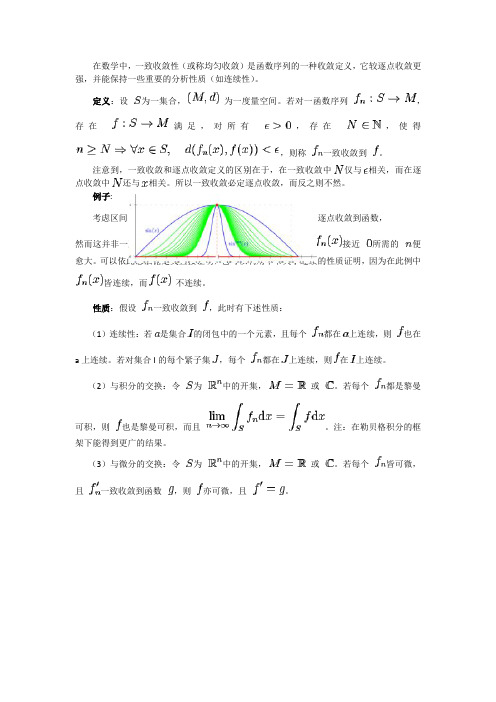 在数学中，一致收敛性（或称均匀收敛）是函数序列的一种收敛定义，它较逐点收敛更
强，并能保持一些重要的分析性质（如连续性）。
定义：设 S为一集合，(M, d) 为一度量空间。若对一函数序列 fₙ : S → M，
存在 f : S → M 满足，对所有 ϵ > 0，存在 N ∈ ℕ，使得
n ≥ N ⇒ ∀x ∈ S, d(fₙ(x), f(x)) < ϵ，则称 fₙ一致收敛到 f。
注意到，一致收敛和逐点收敛定义的区别在于，在一致收敛中N仅与ϵ相关，而在逐
点收敛中N还与x相关。所以一致收敛必定逐点收敛，而反之则不然。
例子:
考虑区间 逐点收敛到函数，
sin(x) sin(x)
然而这并非一 fₙ(x)接近 0所需的 n便
愈大。可以依 的性质证明，因为在此例中
fₙ(x)皆连续，而f 不连续。
性质：假设 fₙ一致收敛到 f，此时有下述性质：
（1）连续性：若a是集合I的闭包中的一个元素，且每个 fₙ都在a上连续，则 f也在
a 上连续。若对集合 I 的每个紧子集J，每个 fₙ都在J上连续，则f在I上连续。
（2）与积分的交换：令 S为 ℝⁿ中的开集，M = ℝ 或 ℂ。若每个 fₙ都是黎曼
可积，则 f也是黎曼可积，而且 lim n→∞ ∫_S fₙdx = ∫_S fdx。注：在勒贝格积分的框
架下能得到更广的结果。
（3）与微分的交换：令 S为 ℝⁿ中的开集，M = ℝ 或 ℂ。若每个 fₙ皆可微，
且 f′ₙ一致收敛到函数 g，则 f亦可微，且 f′ = g。